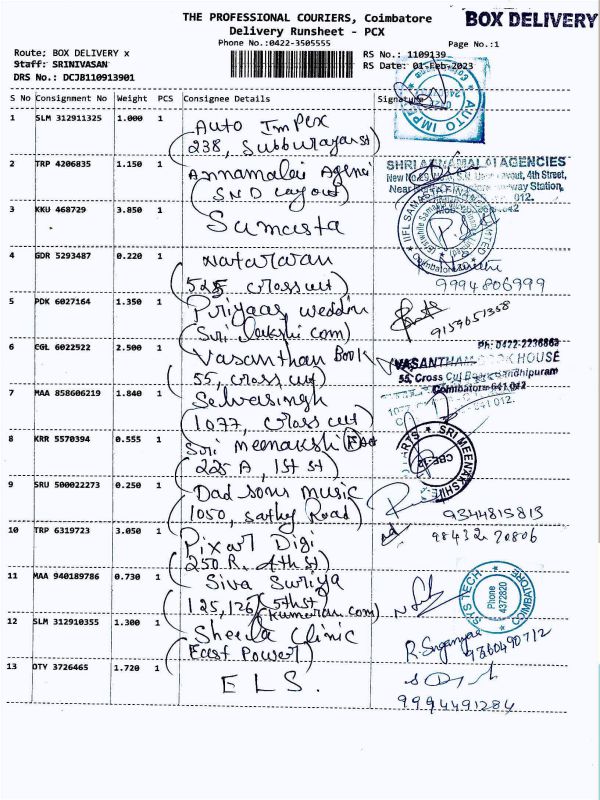 THE PROFESSIONAL COURIERS, Coimbatore
BOX DELIVERY
Delivery Runsheet - PCX
Phone No.:0422-3505555
Page No.:1
Route; BOX DELIVERY x
RS No.: 1109139
Staff: SRINIVASAN
RS Date: 01-Feb-2023
DRS No.: DCJB110913901
S No Consignment No Weight PCS Consignee Details Signature
1 SLM 312911325 1.000 1 Auto Impex
238, Subburayan st)
AUTO IMPE
2 TRP 4206835 1.150 1 Annamalai
(SND Layout)
SHRI ANNAMALAI AGENCIES
Layout, 4th Street,
Station,
012.
3 KKU 468729 3.850 1 Samasta
IIFL SAMASTA FINANCE LIMITED
Coimbatore
4 GDR 5293487 0.220 1 Natararan
(525 cross cut)
9994806999
5 PDK 6027164 1.350 1 Priyaas weddin
(Sri Lakshi com)
9159651358
6 CGL 6022522 2.500 1 Vasanthan Book
55, cross cut)
Ph: 0422-2236863
VASANTHAM BOOK HOUSE
55, Cross Cut Road, Gandhipuram
Coimbatore-641 012.
7 MAA 858606219 1.840 1 Selvasingh
(1077, cross cut)
641 012.
8 KRR 5570394 0.555 1 Sri Meenakshi
(225 A, 1st st)
SRI MEENAKSHI
CBE-12
ARTS
9 SRU 500022273 0.250 1 Dad sons music
1050, sathy Road)
9344815813
10 TRP 6319723 3.050 1 Pixart Digi
250 R. 4th st)
98432 20806
11 MAA 940189786 0.730 1 Siva Suriya
(125,126, 5th st
(kumaran com)
STS TECH
Phone
4372820
COIMBATORE
12 SLM 312910355 1.300 1 Sheela Clinic
(East Power)
9360490712
13 OTY 3726465 1.720 1 ELS.
9994491284